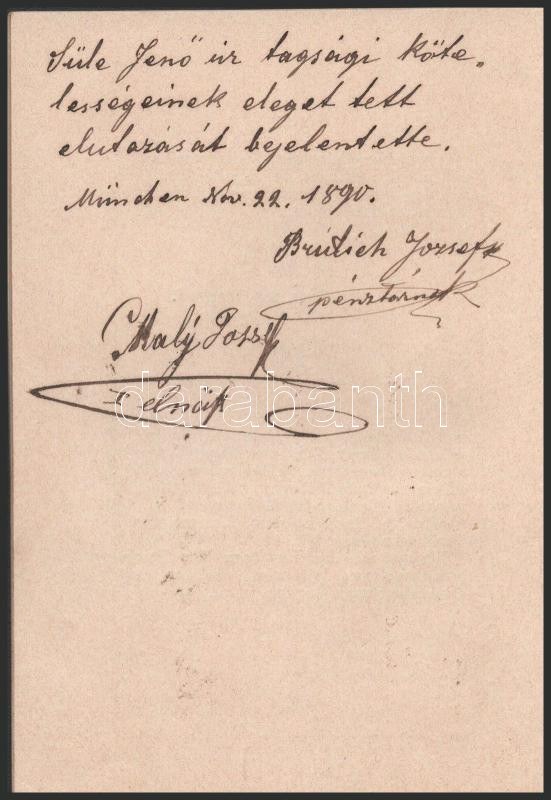 Süle Jenő úr tagsági köte„
lességeinek eleget tett
elutazását bejelentette.
München Nov. 22. 1890.
József
pénztárnok
Malý
I elnök
darabanth